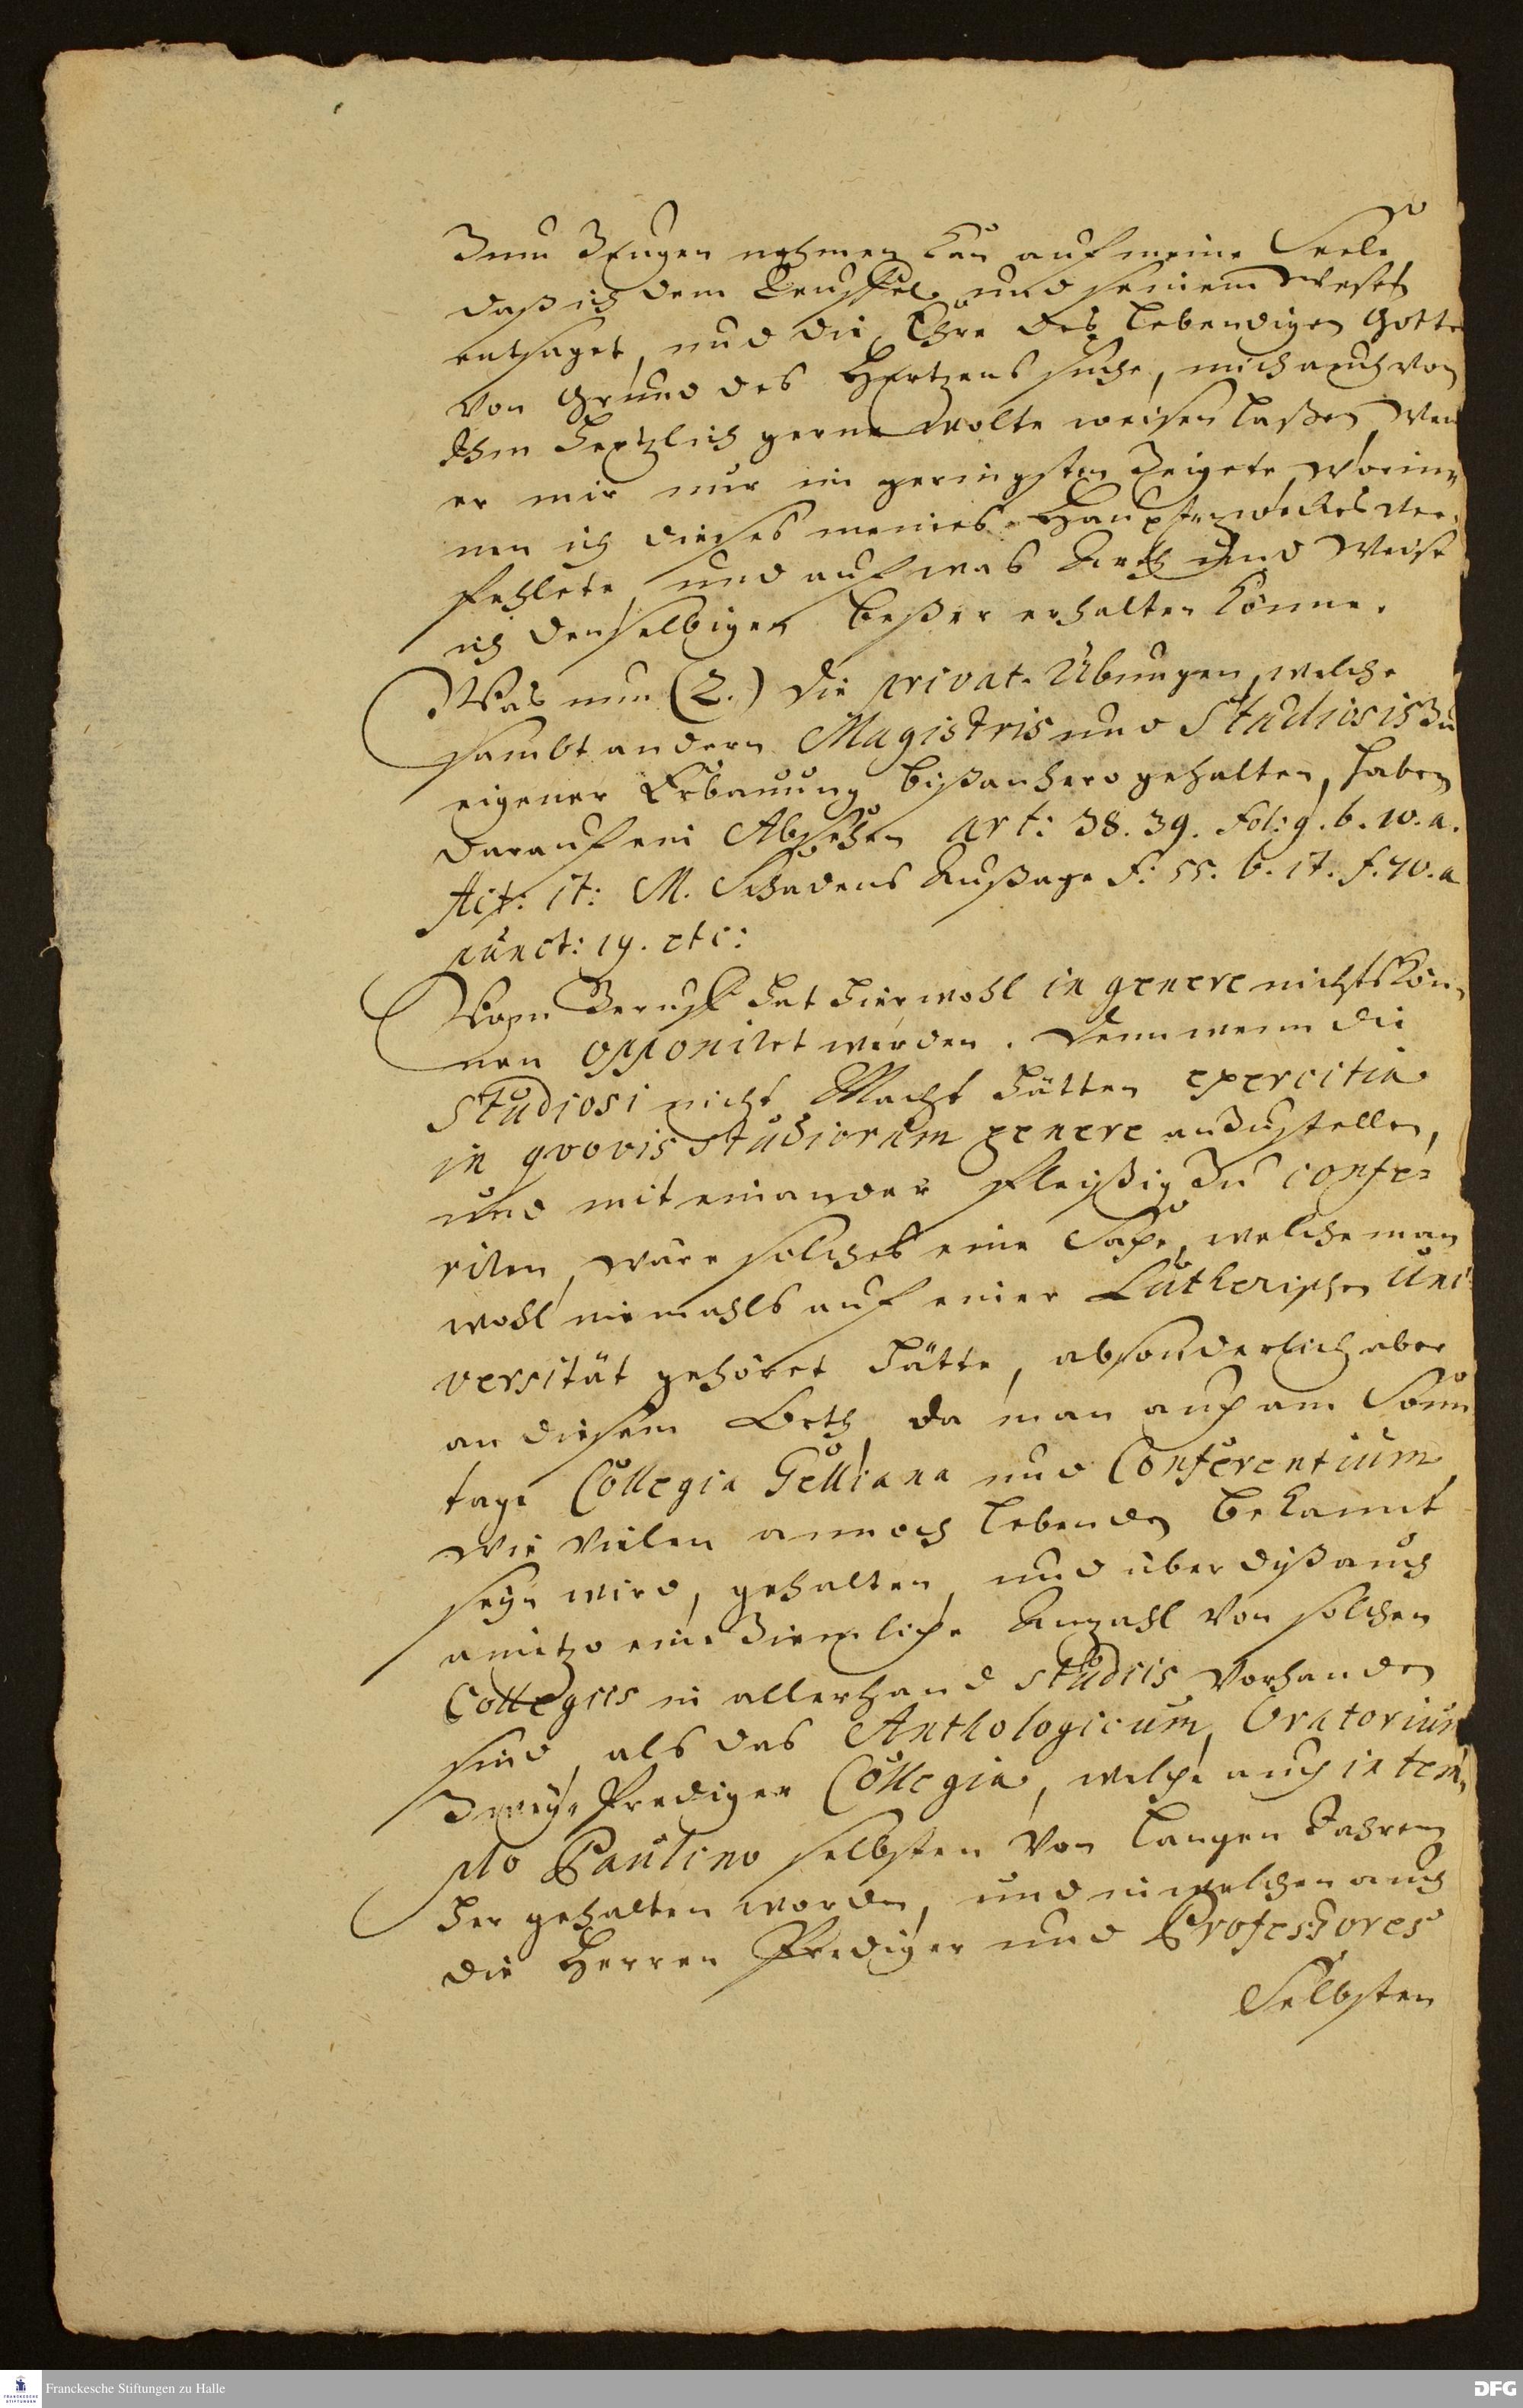 Zum Zeugen nehmen kan auf meine Seele,
daß ich dem Teuffel und seinem Wesen
entsaget, und die Ehre des lebendigen Gotte
von Grund des Hertzens suche, mich auch von
Ihm hertzlich gerne wolte weisen laßen, wen
er mir nur im geringsten Zeigete, worin-
nen ich dieses meines Hauptzweckes ver-
fehlete, und auf was Arth und Weise
ich denselbigen beßer erhalten könne.
Was nun (2.) die privat-Übungen, welche
sambt andern Magistris und Studiosis Zu
eigener Erbauung bißanhero gehalten, haben
darauf ein Absehen art: 38. 39. Fol: 9. b. 10. a.
it: M. Schadens Außage F: 55. b. it. f. 70. a
punct: 19. etc:
Vom Beruff hat hier wohl in genere nichts kön-
nen opponiret werden. Denn wenn die
Studiosi nicht Macht hätten exercitia
in qvovis studiorum genere anzustellen,
und mit einander fleißig Zu confe-
riren, wäre solches eine Sache, welche man
wohl niemahls auf einer Lutherischen Uni-
versität gehöret hätte, absonderlich aber
an diesem Orth, da man auch am Sonn
tage Collegia Gelliana und Conferentium,
wie vielen annoch lebenden bekannt
seyn wird, gehalten, und über diß auch
anitzo eine Ziemliche Anzahl von solchen
Collegiis in allerhand studiis vorhanden
sind, als das Anthologicum, Oratorium
Zwey Prediger Collegia, welche auch in tem-
plo Paulino selbsten von langen Jahren
her gehalten worden, und in welchen auch
die Herren Prediger und Professores
Selbsten
Franckesche Stiftungen zu Halle
DFG